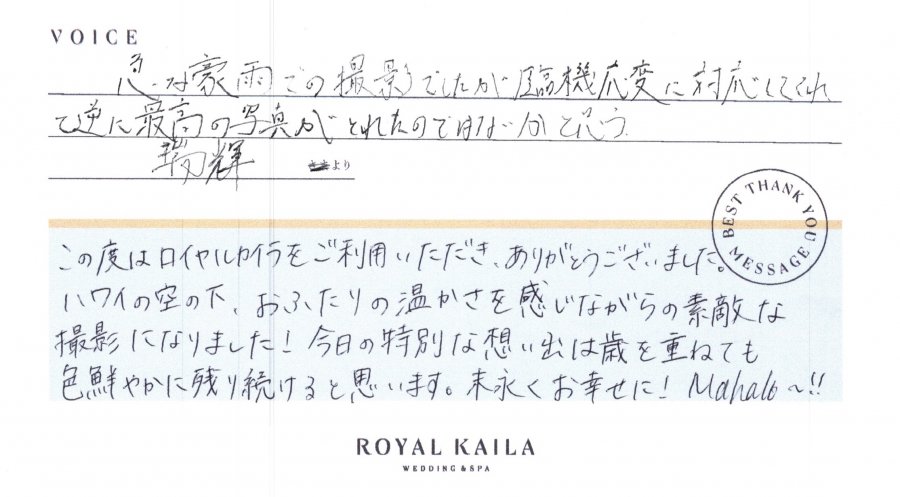 VOICE
急な豪雨での撮影でしたが臨機応変に対応してくれ
て逆に最高の写真がとれたのではないかと思う。
瑞輝 より
BEST THANK YOU MESSAGE
この度はロイヤルカイラをご利用いただき、ありがとうございました。
ハワイの空の下、おふたりの温かさを感じながらの素敵な
撮影になりました！今日の特別な想い出は歳を重ねても
色鮮やかに残り続けると思います。末永くお幸せに！Mahalo～!!
ROYAL KAILA
WEDDING & SPA